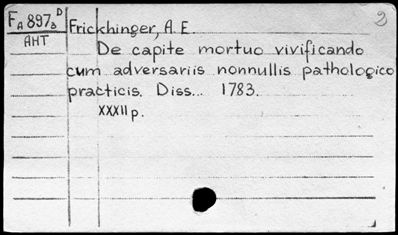 FA 897a D
Frickhinger, A. E.
2
AHT
De capite mortuo vivificando
cum adversariis nonnullis pathologico
practicis. Diss... 1783.
XXXII p.